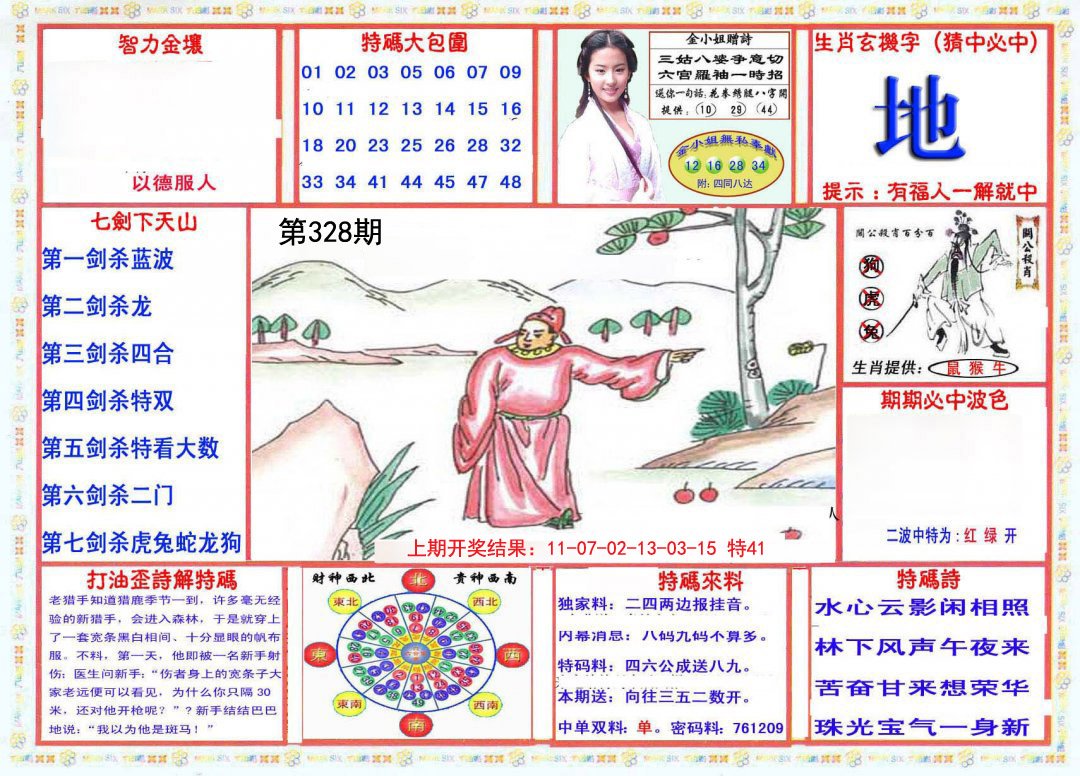 智力金壤
以德服人
特碼大包圍
01 02 03 05 06 07 09
10 11 12 13 14 15 16
18 20 23 25 26 28 32
33 34 41 44 45 47 48
金小姐贈詩
三姑八婆爭意切
六宫羅袖一時招
送你一句話:花拳綉腿八字開
提供:(10) (29) (44)
金小姐無私奉獻
12 16 28 34
附:四同八达
生肖玄機字(猜中必中)
地
提示:有福人一解就中
七劍下天山
第一剑杀蓝波
第二剑杀龙
第三剑杀四合
第四剑杀特双
第五剑杀特看大数
第六剑杀二门
第七剑杀虎兔蛇龙狗
第328期
人
上期开奖结果:11-07-02-13-03-15 特41
關公殺肖百分百
關公殺肖
狗
虎
兔
生肖提供:鼠 猴 牛
期期必中波色
二波中特为:红 绿 开
打油歪詩解特碼
老猎手知道猎鹿季节一到,许多毫无经
验的新猎手,会进入森林,于是就穿上
了一套宽条黑白相间、十分显眼的帆布
服。不料,第一天,他即被一名新手射
伤;医生问新手:“伤者身上的宽条子大
家老远便可以看见,为什么你只隔 30
米,还对他开枪呢?”?新手结结巴巴
地说:“我以为他是斑马!”
財神西北
貴神西南
北
東北
西北
東
西
東南
西南
南
特碼來料
独家料:二四两边报挂音。
内幕消息:八码九码不算多。
特码料:四六公成送八九。
本期送:向往三五二数开。
中单双料:单。密码料:761209
特碼詩
水心云影闲相照
林下风声午夜来
苦奋甘来想荣华
珠光宝气一身新